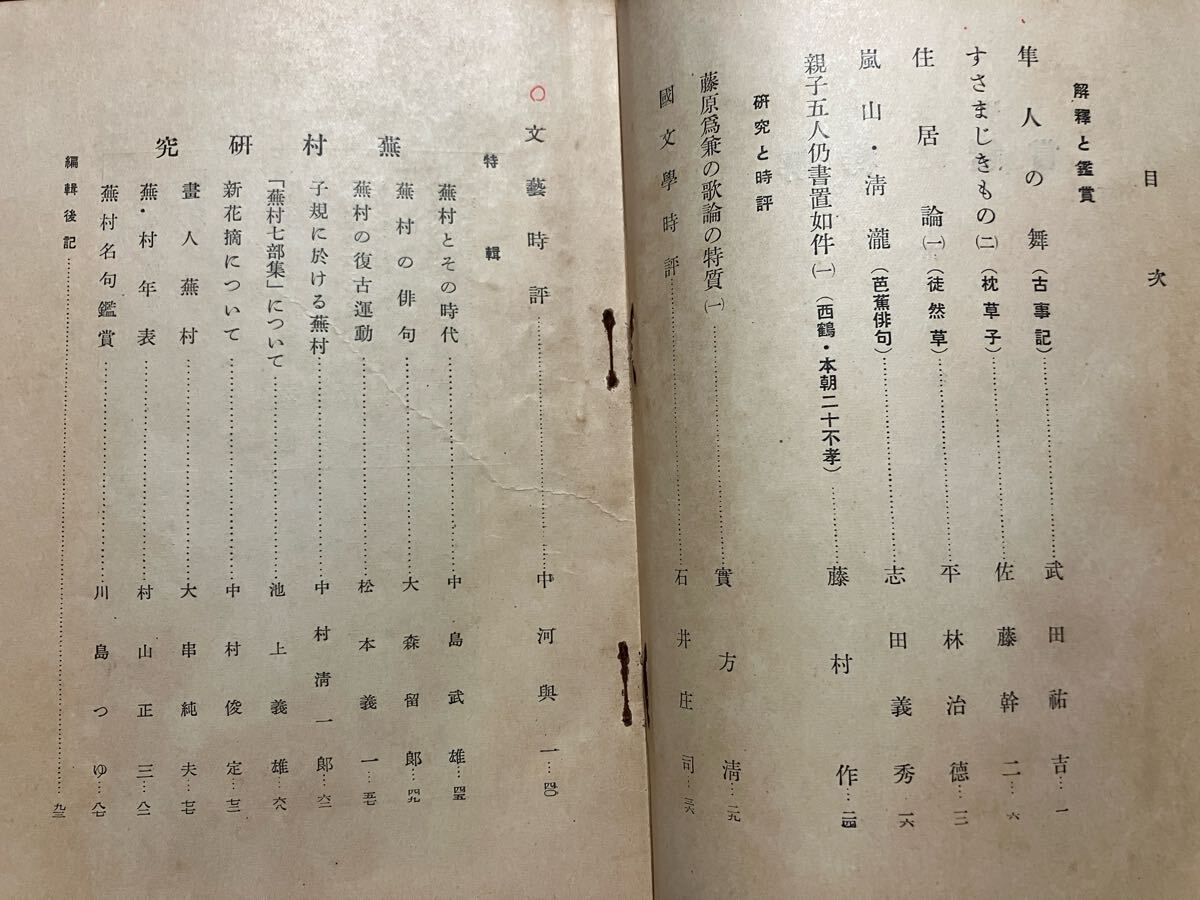 目次
解釋と鑑賞
隼人の舞(古事記)……武田祐吉…一
すさまじきもの(二)(枕草子)……佐藤幹二…六
住居論(一)(徒然草)……平林治德…一二
嵐山・淸瀧(芭蕉俳句)……志田義秀…一六
親子五人仍書置如件(一)(西鶴・本朝二十不孝)……藤村作…二四
硏究と時評
藤原爲兼の歌論の特質(一)……實方淸…二九
國文學時評……石井庄司…三六
○文藝時評……中河與一…四〇
特輯
蕪村硏究
蕪村とその時代……中島武雄…四五
蕪村の俳句……大森留郞…四九
蕪村の復古運動……松本義一…五七
子規に於ける蕪村……中村淸一郞…六二
「蕪村七部集」について……池上義雄…六八
新花摘について……中村俊定…七三
畫人蕪村……大串純夫…七七
蕪・村年表……村山正三…八二
蕪村名句鑑賞……川島つゆ…八七
編輯後記……九三